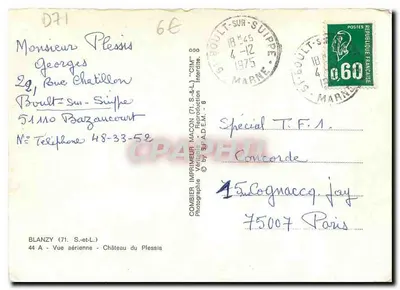 D71
6€
Monsieur Plessis
Georges
22, Rue Chatillon
Boult-Sur-Suippe
51110 Bazancourt
N° Téléphone 48-33-52
BLANZY (71. S.-et-L.)
44 A - Vue aérienne - Château du Plessis
COMBIER IMPRIMEUR MACON (71. S.-&-L.) "CIM"
Photographie Véritable - Reproduction Interdite.
BOULT-SUR-SUIPPE
18H45
4-12
1975
MARNE
POSTES
0,60
REPUBLIQUE FRANÇAISE
Spécial T.F.1.
Concorde
15 Cognaccq. Jay
75007 Paris